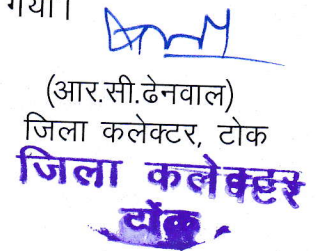 गया।
(आर.सी.ढेनवाल)
जिला कलेक्टर, टोक
जिला कलेक्टर
टोंक